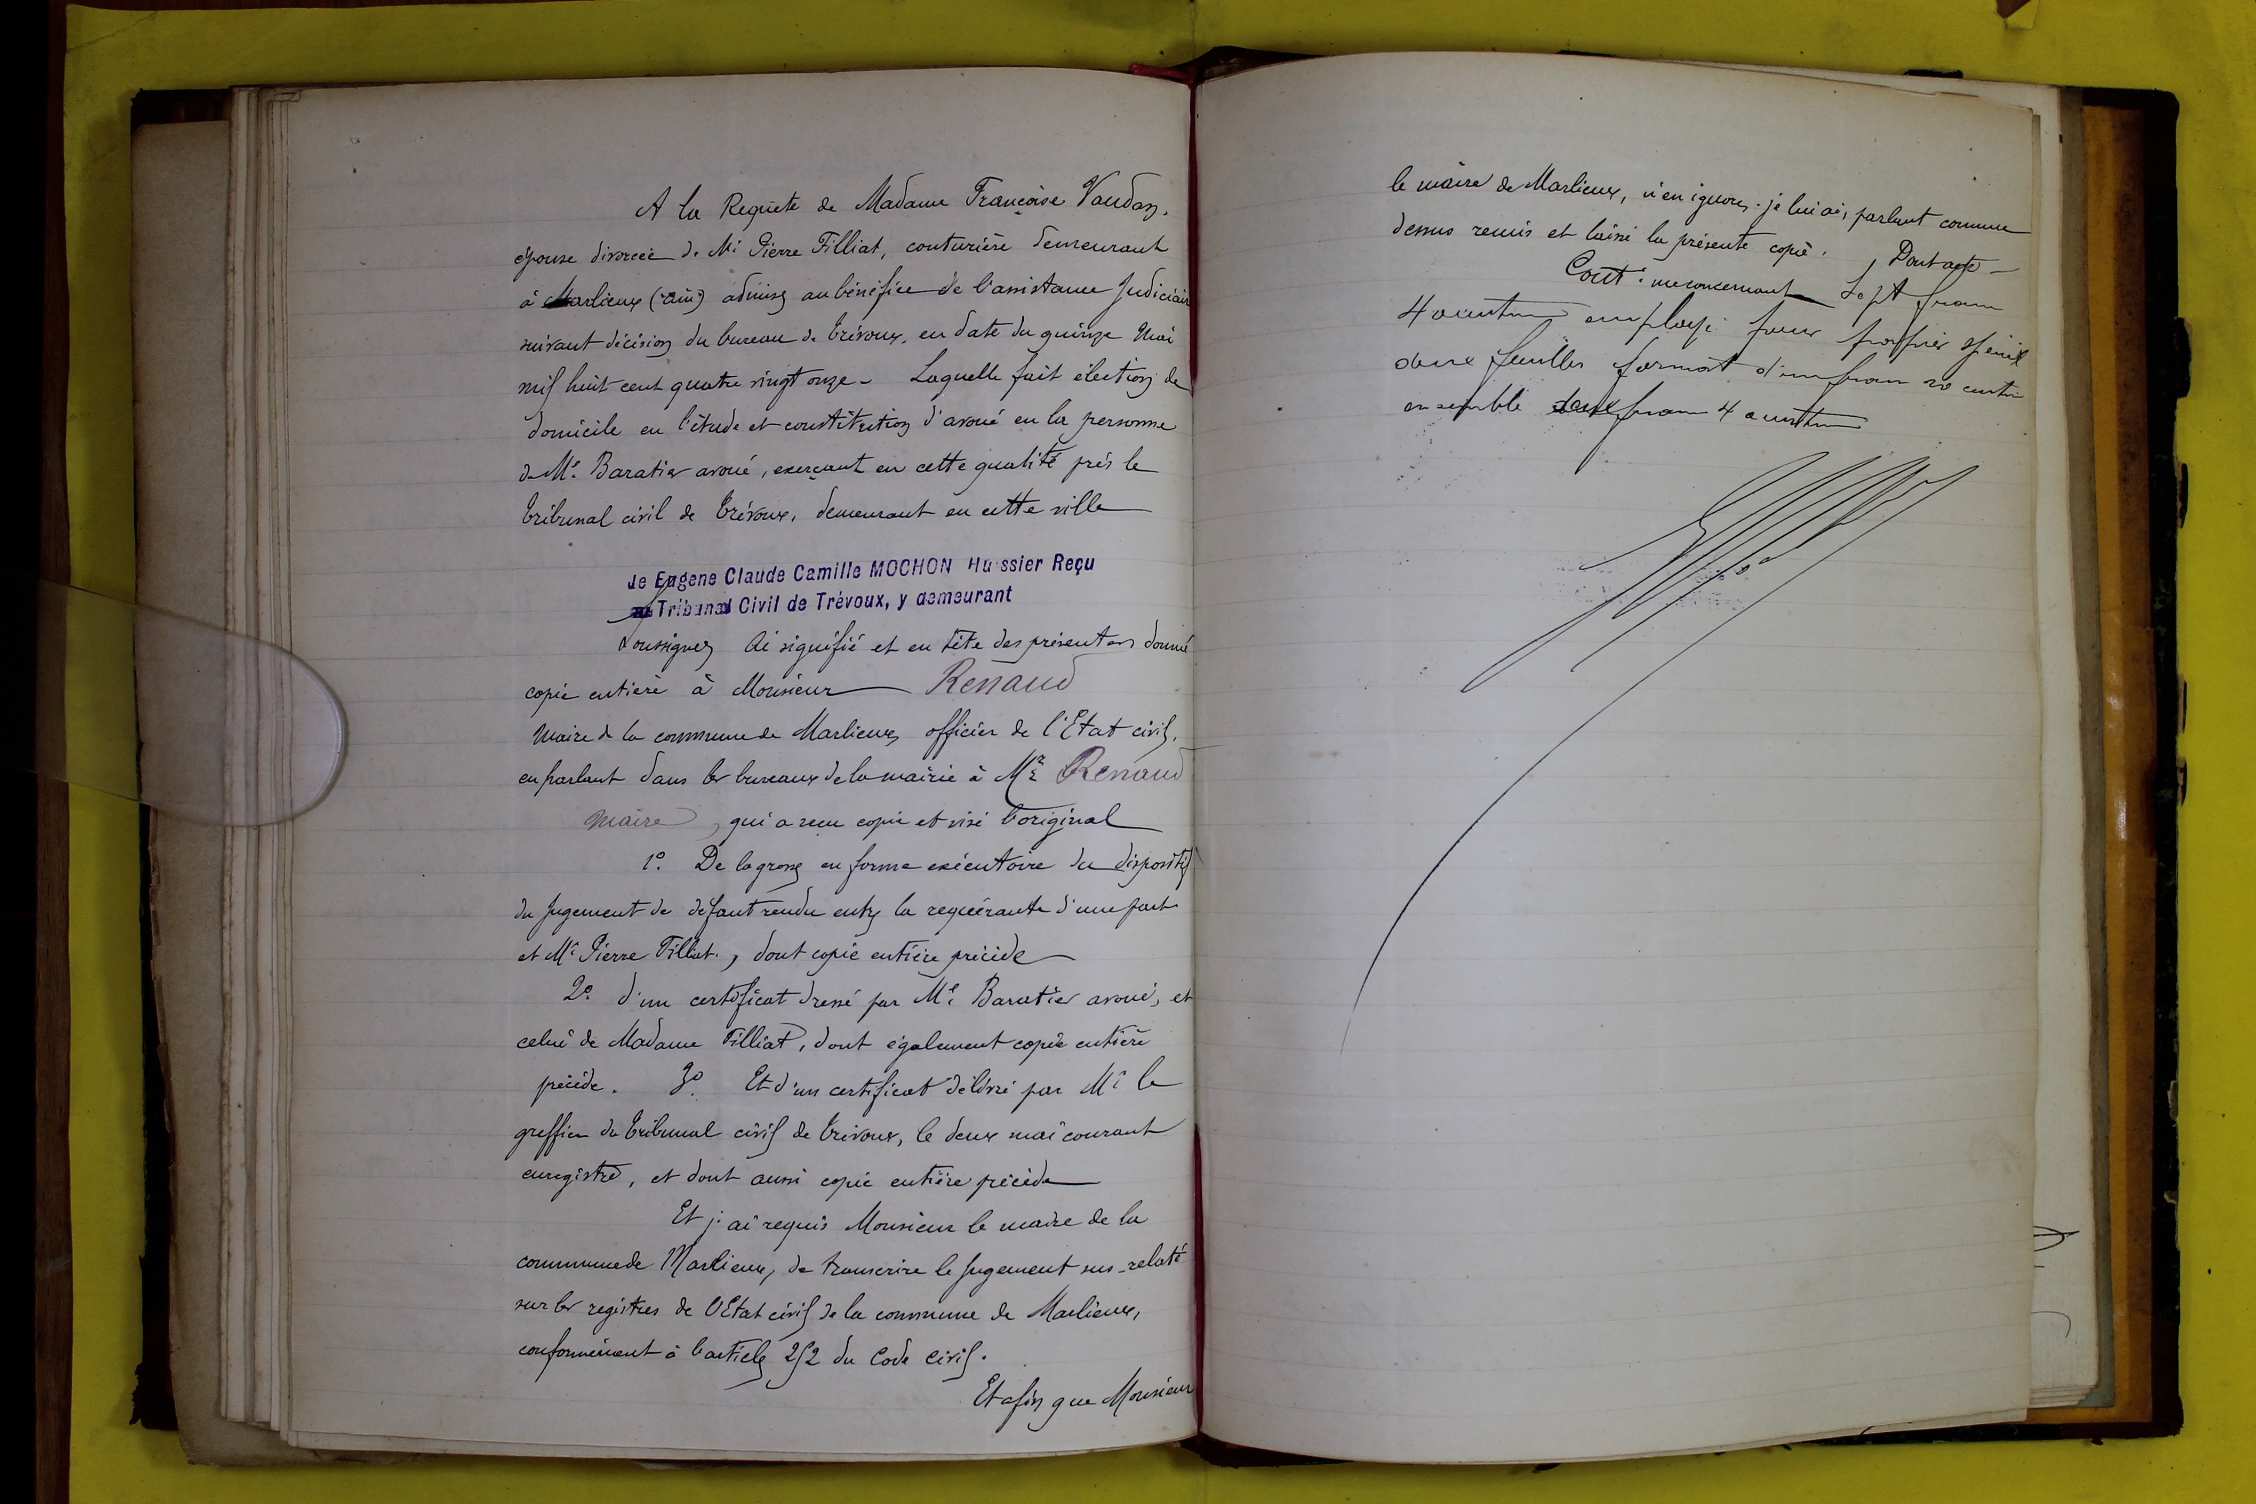 A la Requête de Madame Françoise Vaudan,
épouse divorcée de Mr Pierre Filliat, couturière demeurant
à Marlieux (ain) admise au bénéfice de l'assistance Judiciaire
suivant décision du bureau de Trévoux, en date du quinze Mai
mil huit cent quatre vingt onze - Laquelle fait élection de
domicile en l'étude et constitution d'avoué en la personne
de Me Baratier avoué, exerçant en cette qualité près le
Tribunal civil de Trévoux, demeurant en cette ville
Je Eugene Claude Camille MOCHON Huissier Reçu
au Tribunal Civil de Trévoux, y demeurant
soussigné, ai signifié et en tête des présentes donné
copie entière à Monsieur Renaud
Maire de la commune de Marlieux officier de l'Etat civil,
en parlant dans les bureaux de la mairie à Mr Renaud
Maire, qui a reçu copie et visé l'original
1o. De la grosse en forme exécutoire du dispositif
du Jugement de défaut rendu entre la requérante d'une part
et Mr Pierre Filliat, dont copie entière précède
2o. d'un certificat dressé par Me Baratier avoué, et
celui de Madame Filliat, dont également copie entière
précède. 3o. Et d'un certificat délivré par Mr le
greffier du Tribunal civil de Trévoux, le deux mai courant
enregistré, et dont aussi copie entière précède
Et j'ai requis Monsieur le maire de la
commune de Marlieux, de transcrire le Jugement sus-relaté
sur les registres de l'Etat civil de la commune de Marlieux,
conformément à l'article 252 du Code civil.
Et afin que Monsieur
le maire de Marlieux, n'en ignore, je lui ai, parlant comme
dessus remis et laissé la présente copie. Dont acte -
Cout: me concernant Sept francs
employé pour papier spécial
deux feuilles format d'un franc 20 centimes
ensemble deux francs 40 centimes